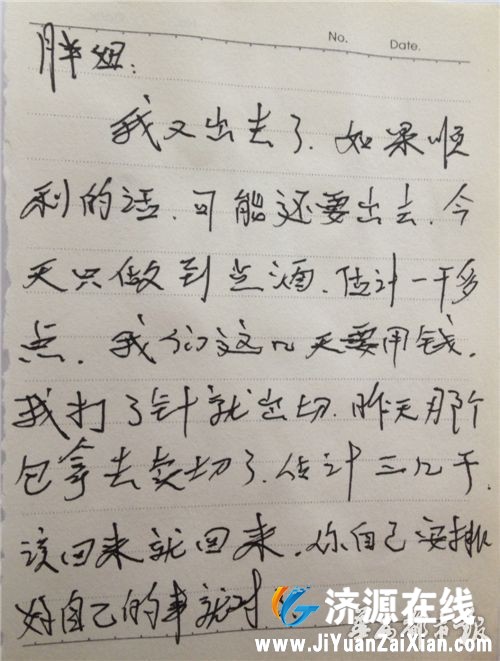 No. Date.
胖姐:
我又出去了.如果顺
利的话.可能还要出去.今
天只做到点酒.估计一千多
点.我们这几天要用钱.
我打了针就出切.昨天那个
包拿去卖切了.估计三几千.
该回来就回来.你自己安排
好自己的事就对
济源在线
www.JiYuanZaiXian.com
都市报